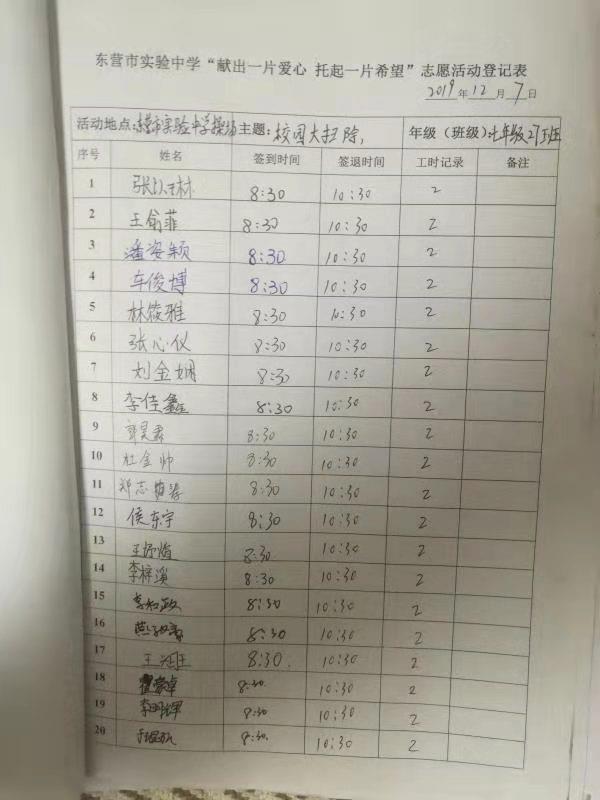 东营市实验中学“献出一片爱心 托起一片希望”志愿活动登记表
2019年12月7日
活动地点:东营市实验中学操场 主题:校园大扫除, 年级(班级):七年级27班
序号 姓名 签到时间 签退时间 工时记录 备注
1 张 林 8:30 10:30 2
2 王俞菲 8:30 10:30 2
3 潘姿颖 8:30 10:30 2
4 车俊博 8:30 10:30 2
5 林筱雅 8:30 10:30 2
6 张心仪 8:30 10:30 2
7 刘金娴 8:30 10:30 2
8 李佳鑫 8:30 10:30 2
9 8:30 10:30 2
10 杜金帅 8:30 10:30 2
11 郑志 8:30 10:30 2
12 侯东宇 8:30 10:30 2
13 王 8:30 10:30 2
14 李梓溪 8:30 10:30 2
15 李 政 8:30 10:30 2
16 8:30 10:30 2
17 王 8:30. 10:30 2
18 8:30. 10:30 2
19 李明 8:30. 10:30 2
20 8:30. 10:30 2